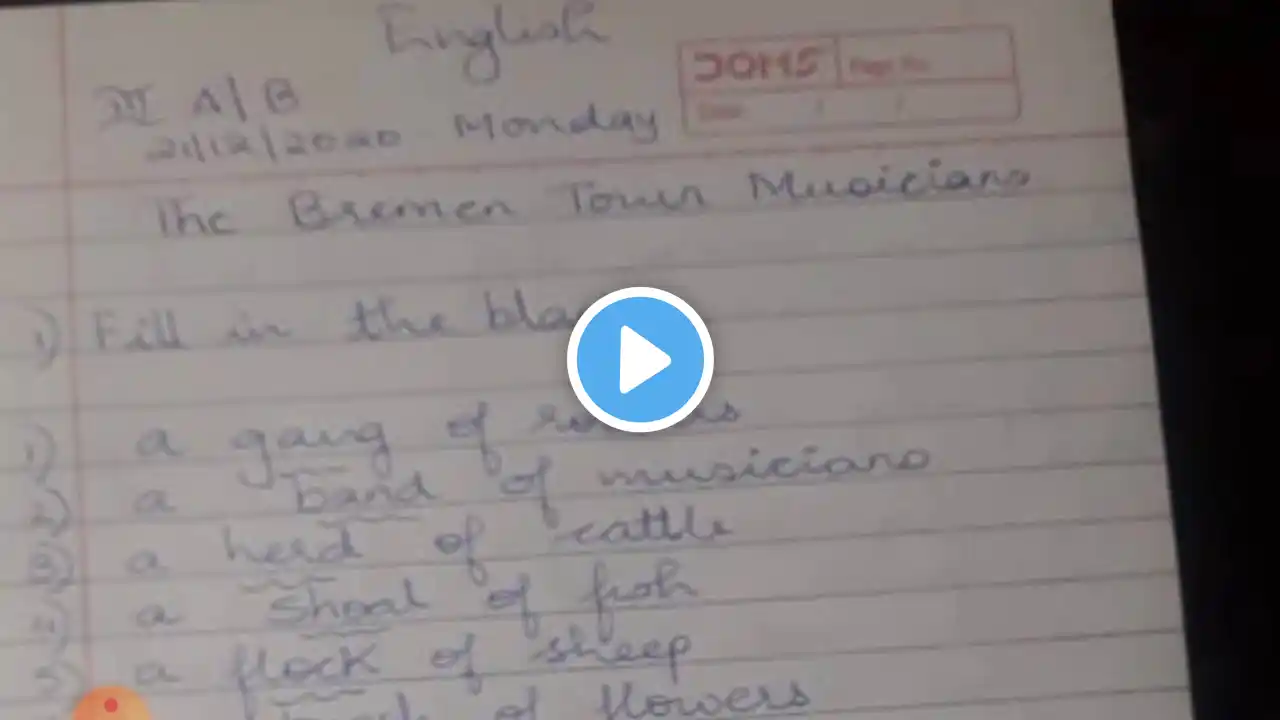 English
A/B
21/12/2020 Monday
DOMS Page No.
Date / /
The Bremen Town Musicians
1) Fill in the
1) a gang of
2) a band of musicians
3) a herd of cattle
4) a shoal of fish
5) a flock of sheep
of flowers